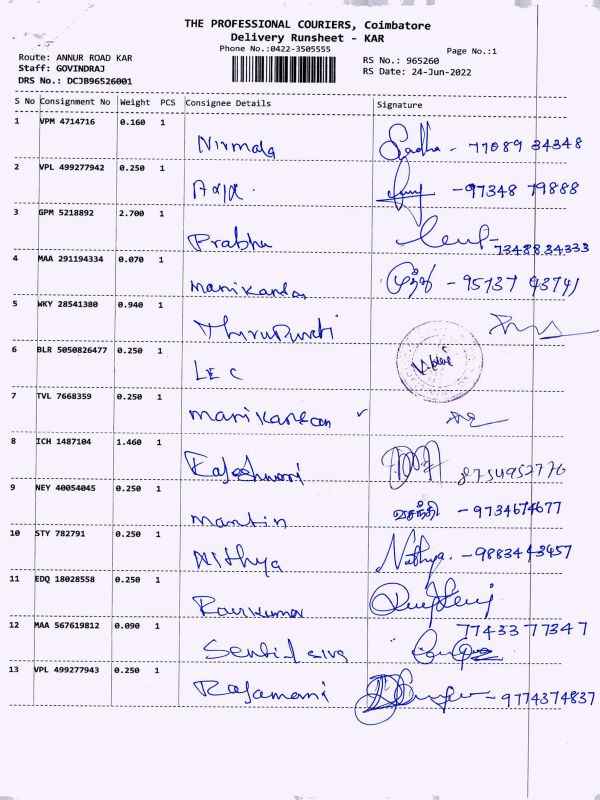 THE PROFESSIONAL COURIERS, Coimbatore
Delivery Runsheet - KAR
Phone No.:0422-3505555
Page No.:1
Route: ANNUR ROAD KAR
RS No.: 965260
Staff: GOVINDRAJ
RS Date: 24-Jun-2022
DRS No.: DCJB96526001
S No Consignment No Weight PCS Consignee Details Signature
1 VPM 4714716 0.160 1
Nirmala Sudha - 77089 34348
2 VPL 499277942 0.250 1
- 97348 79888
3 GPM 5218892 2.700 1
Prabhu 7348834333
4 MAA 291194334 0.070 1
manikandan - 95737 43741
5 WKY 28541380 0.940 1
6 BLR 5050826477 0.250 1
LEC
7 TVL 7668359 0.250 1
manikandan
8 ICH 1487104 1.460 1
Rajeshwari 8754952770
9 NEY 40054045 0.250 1
martin வசந்தி - 9734674677
10 STY 782791 0.250 1
Nithya Nathya. - 9883443457
11 EDQ 18028558 0.250 1
Ravikumar
12 MAA 567619812 0.090 1
7743377347
13 VPL 499277943 0.250 1
Rajamani - 9774374837